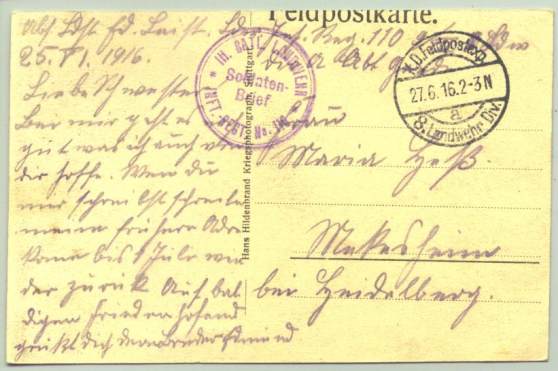 Feldpostkarte.
Abs. Ldst. Ed. Leist. Ldw. Inf. Reg. 110
25. VI. 1916.
Liebe Schwester
bei mir geht es
gut was ich auch von
dir hoffe. Wen du
mir schreibst schreibe
meine frühere Adre
bis 1 Juli
der zurück Auf bal
digen Frieden hofend
grüßt dich dein Bruder Edmund
III. BATL. LANDWEHR
INF.
REGT. No. 110
Soldaten-
Brief
K.D. Feldpostexp.
27.6.16.2-3N
a
8. Landwehr Div.
Hans Hildenbrand Kriegsphotograph, Stuttgart
Frau
Maria Heß.
Mekesheim
bei Heidelberg.